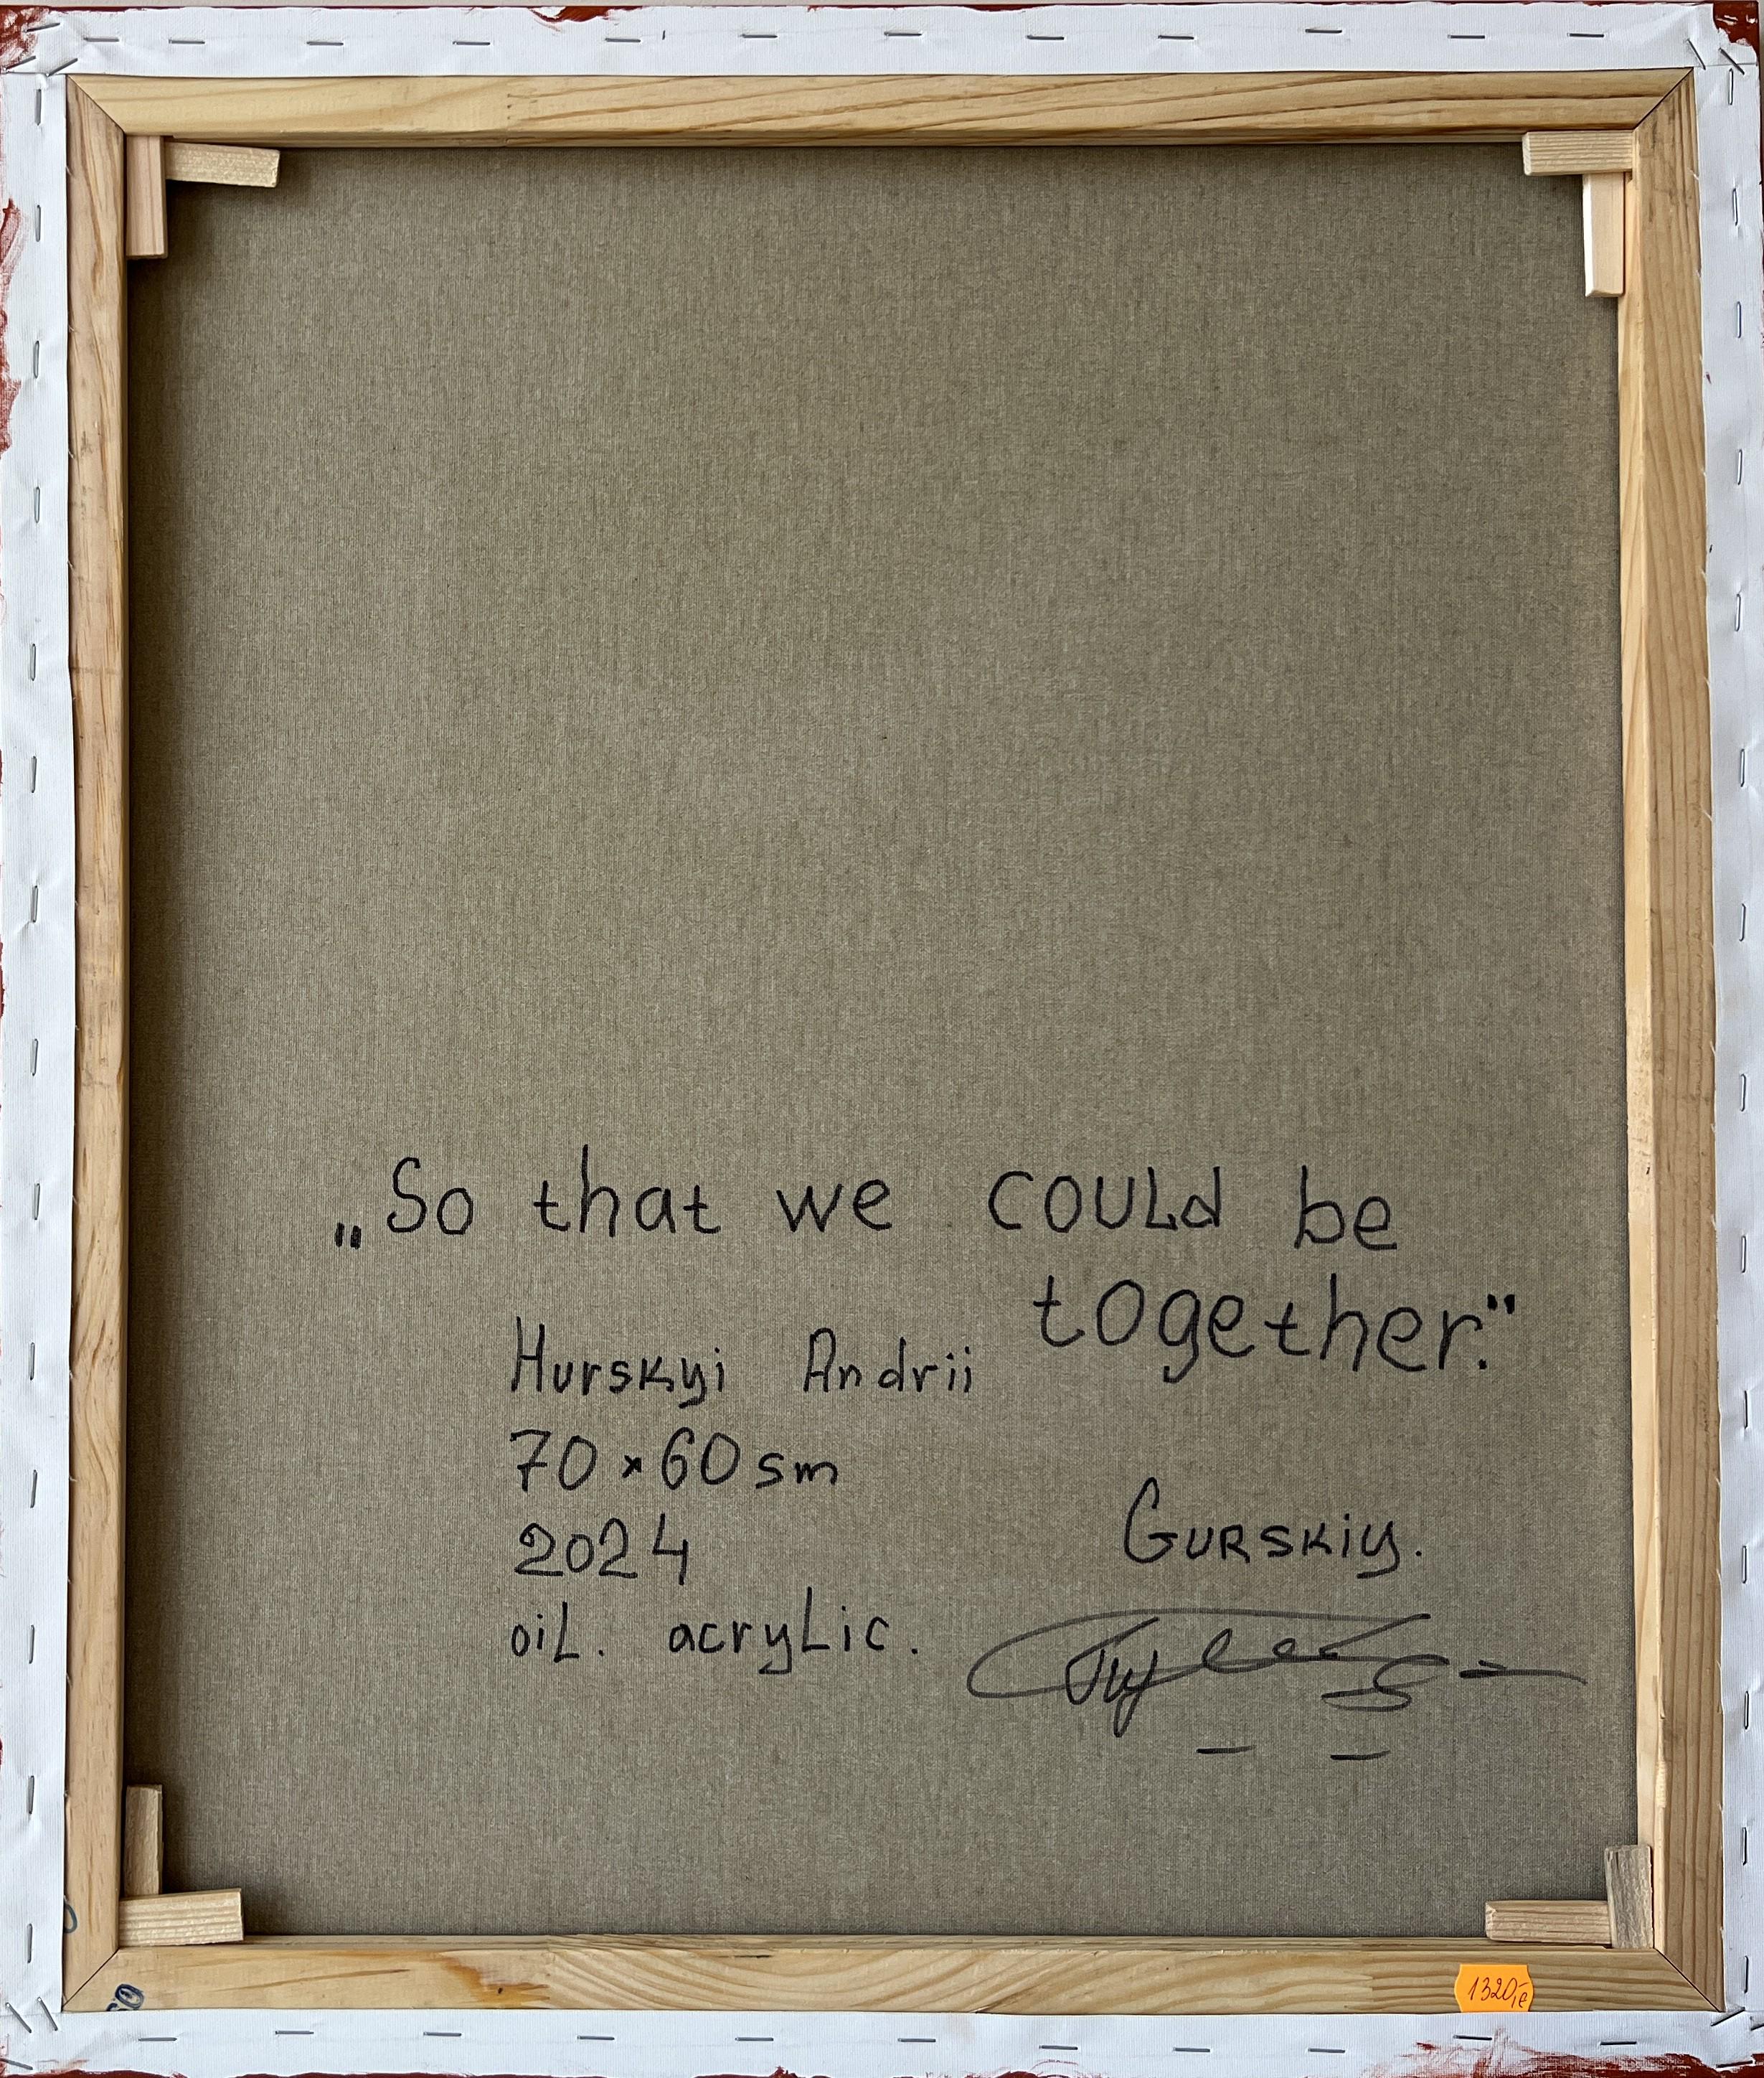 „So that we could be
together."
Hurskyi Andrii
70 × 60 sm
2024
oil. acrylic.
Gurskiy.
60
1320,-e